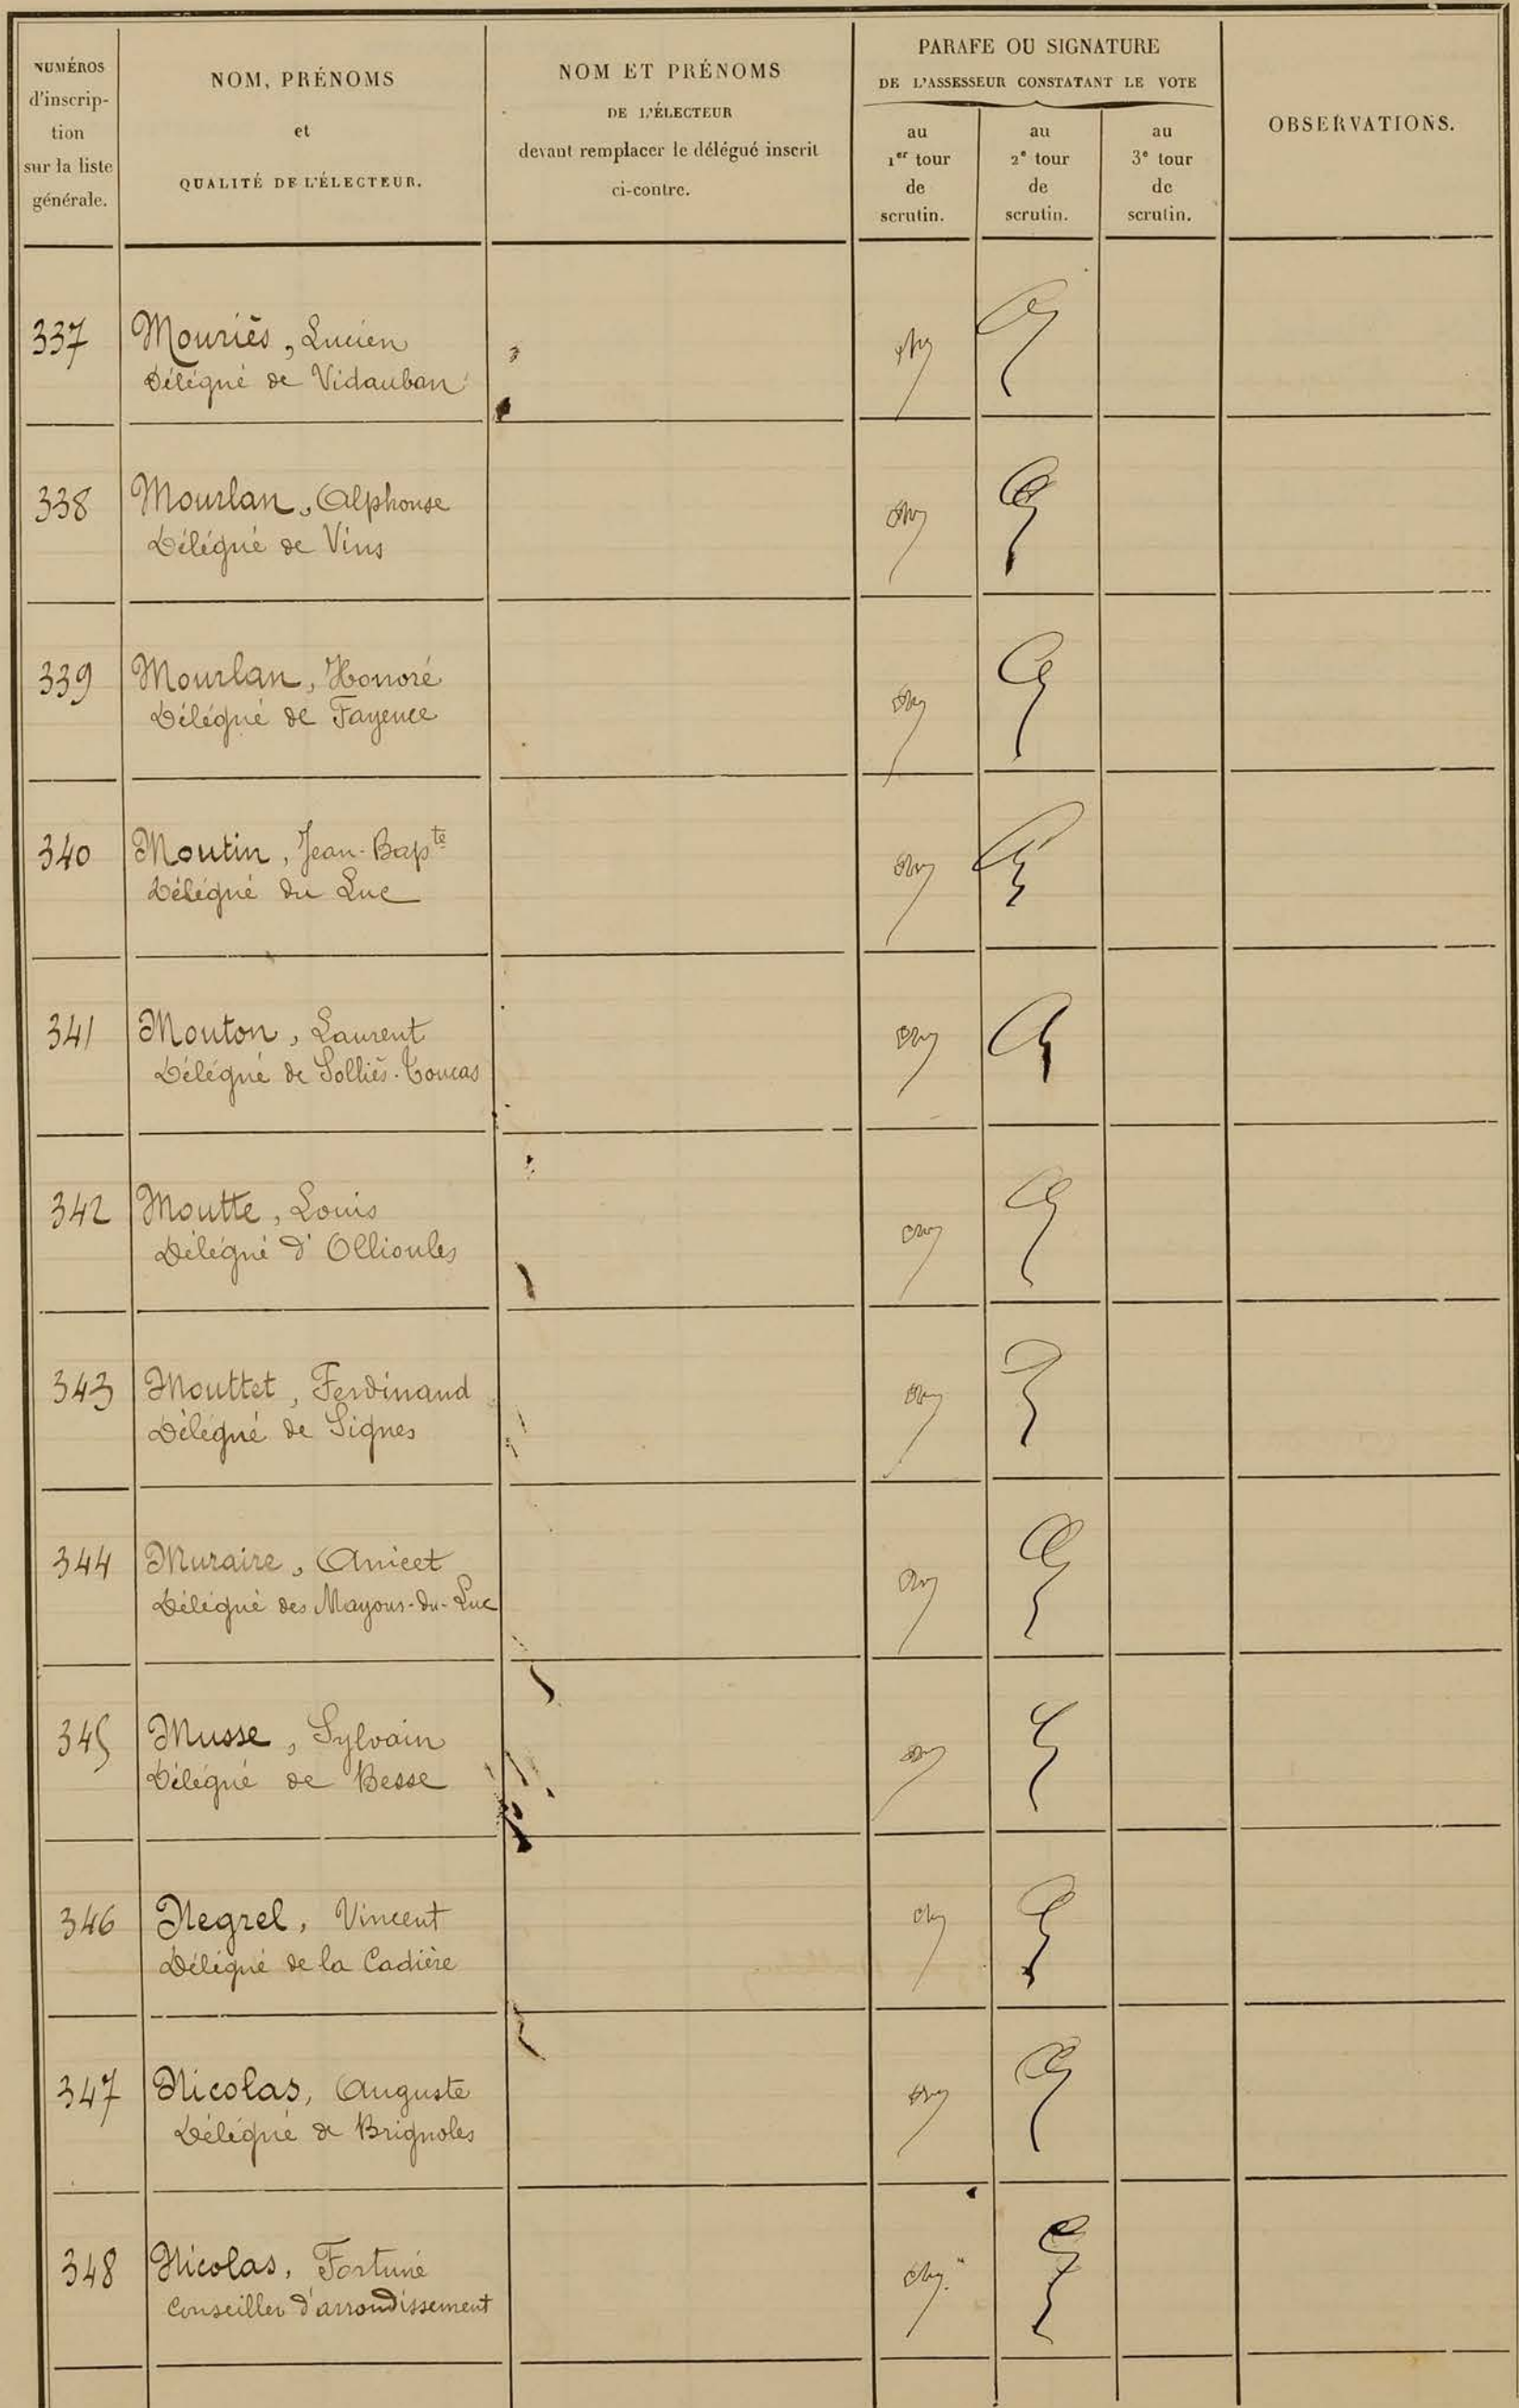 NUMÉROS
d'inscrip-
tion
sur la liste
générale.
NOM, PRÉNOMS
et
QUALITÉ DE L'ÉLECTEUR.
NOM ET PRÉNOMS
DE L'ÉLECTEUR
devant remplacer le délégué inscrit
ci-contre.
PARAFE OU SIGNATURE
DE L'ASSESSEUR CONSTATANT LE VOTE
au
1er tour
de
scrutin.
au
2e tour
de
scrutin.
au
3e tour
de
scrutin.
OBSERVATIONS.
337 Mouriès, Lucien
Délégué de Vidauban
338 Mourlan, Alphonse
Délégué de Vins
339 Mourlan, Honoré
Délégué de Fayence
340 Moutin, Jean-Bapte
Délégué du Luc
341 Mouton, Laurent
Délégué de Solliès-Toucas
342 Moutte, Louis
Délégué d'Ollioules
343 Mouttet, Ferdinand
Délégué de Signes
344 Muraire, Anicet
Délégué des Mayons-du-Luc
345 Musse, Sylvain
Délégué de Besse
346 Negrel, Vincent
Délégué de la Cadière
347 Nicolas, Auguste
Délégué de Brignoles
348 Nicolas, Fortuné
Conseiller d'arrondissement